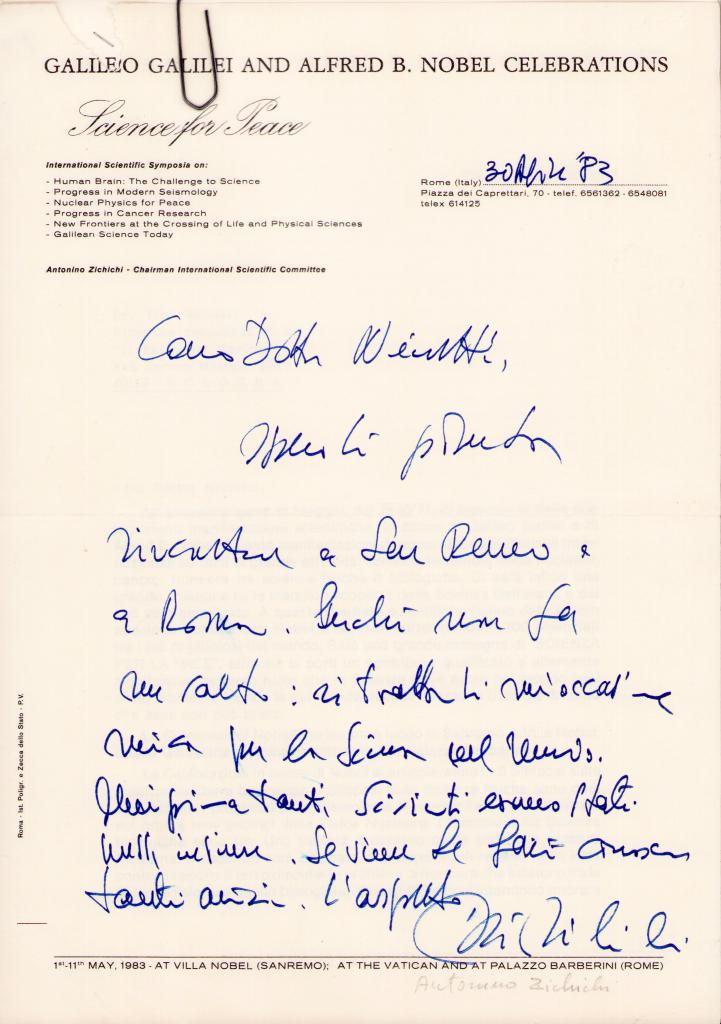 GALILEO GALILEI AND ALFRED B. NOBEL CELEBRATIONS
Science for Peace
International Scientific Symposia on:
- Human Brain: The Challenge to Science
- Progress in Modern Seismology
- Nuclear Physics for Peace
- Progress in Cancer Research
- New Frontiers at the Crossing of Life and Physical Sciences
- Galilean Science Today
Rome (Italy) 30 Aprile '83
Piazza dei Caprettari, 70 - telef. 6561362 - 6548081
telex 614125
Antonino Zichichi - Chairman International Scientific Committee
Caro Dottor
spero di poterla
incontrare a San Remo e
a Roma. Perchè non fa
un salto: si tratta di un'occasione
unica per la Scienza nel mondo.
Mai prima tanti Scienziati erano stati
messi insieme. Se viene le farò conoscere
tanti amici. L'aspetto
Roma - Ist. Poligr. e Zecca dello Stato - P.V.
1st-11th MAY, 1983 - AT VILLA NOBEL (SANREMO); AT THE VATICAN AND AT PALAZZO BARBERINI (ROME)
Antonino Zichichi